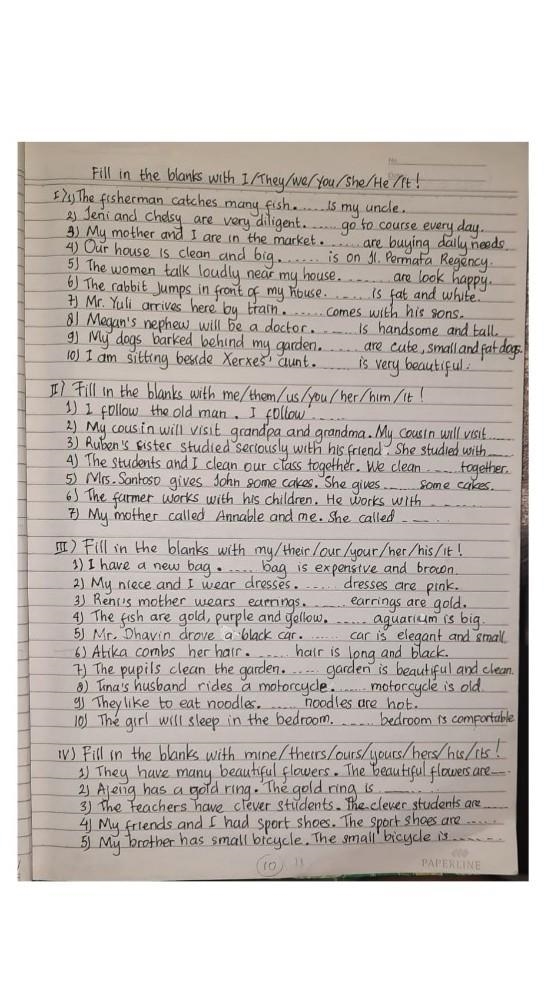 No.
Fill in the blanks with I/They/We/You/She/He/It!
I) 1) The fisherman catches many fish. ..... is my uncle.
2) Jeni and Chelsy are very diligent. ..... go to course every day.
3) My mother and I are in the market. ..... are buying daily needs
4) Our house is clean and big. ...... is on Jl. Permata Regency.
5) The women talk loudly near my house. ...... are look happy.
6) The rabbit jumps in front of my house. ..... is fat and white.
7) Mr. Yuli arrives here by train. ...... comes with his sons.
8) Megan's nephew will be a doctor. ..... is handsome and tall.
9) My dogs barked behind my garden. ..... are cute, small and fat dogs.
10) I am sitting beside Xerxes' aunt. ..... is very beautiful.
II) Fill in the blanks with me/them/us/you/her/him/it!
1) I follow the old man. I follow ......
2) My cousin will visit grandpa and grandma. My cousin will visit ....
3) Ruben's sister studied seriously with his friend. She studied with ....
4) The students and I clean our class together. We clean ...... together.
5) Mrs. Santoso gives John some cakes. She gives ...... some cakes.
6) The farmer works with his children. He works with .......
7) My mother called Annable and me. She called .....
III) Fill in the blanks with my/their/our/your/her/his/it!
1) I have a new bag. ...... bag is expensive and brown.
2) My niece and I wear dresses. ...... dresses are pink.
3) mother wears earrings. ...... earrings are gold.
4) The fish are gold, purple and yellow. ..... aquarium is big.
5) Mr. Dhavin drove a black car. ...... car is elegant and small
6) Atika combs her hair. ...... hair is long and black.
7) The pupils clean the garden. ..... garden is beautiful and clean.
8) Tina's husband rides a motorcycle. ..... motorcycle is old.
9) They like to eat noodles. ..... noodles are hot.
10) The girl will sleep in the bedroom. ..... bedroom is comfortable
IV) Fill in the blanks with mine/theirs/ours/yours/hers/his/its!
1) They have many beautiful flowers. The beautiful flowers are ....
2) Ajeng has a gold ring. The gold ring is .......
3) The teachers have clever students. The clever students are .....
4) My friends and I had sport shoes. The sport shoes are .....
5) My brother has small bicycle. The small bicycle is .......
10
PAPERLINE